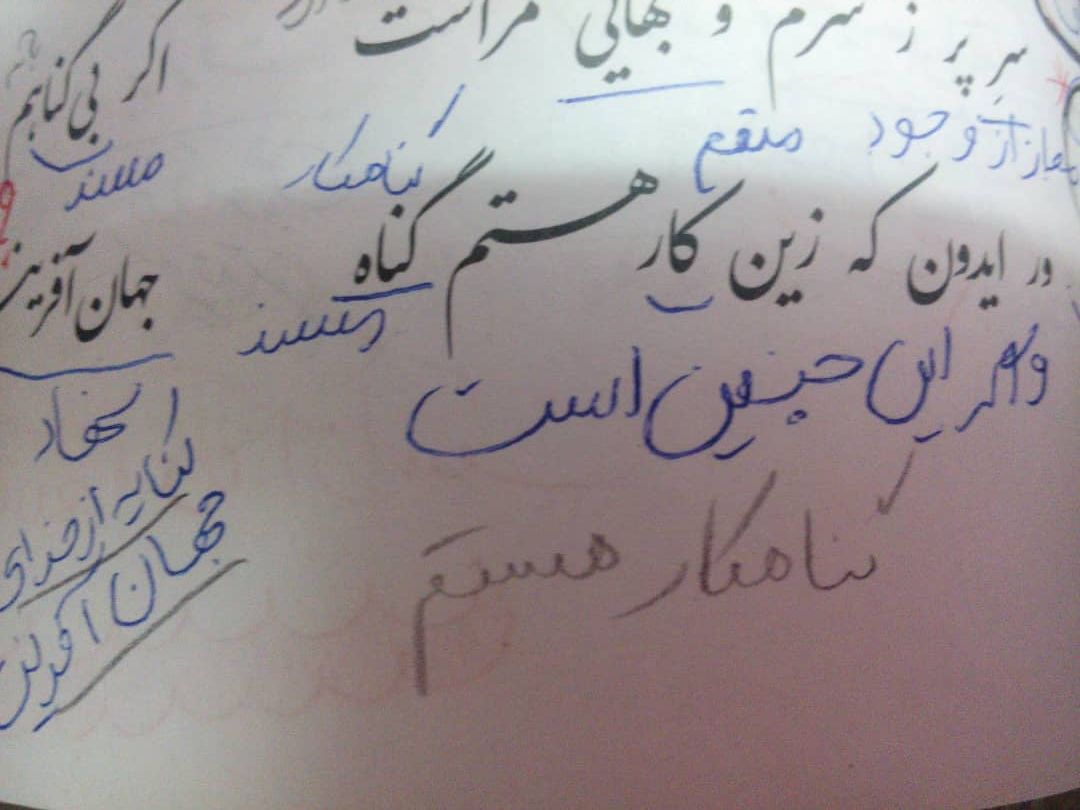 سرِ پر ز شرم و بهایی مراست اگر بی گناهم
مجاز از وجود متمم گناهکار مسند
ور ایدون که زین کار هستم گناه جهان آفرین
مسند
واگر این چنین است
نهاد
گناهکار هستم
کنایه از خدای
جهان آفرین